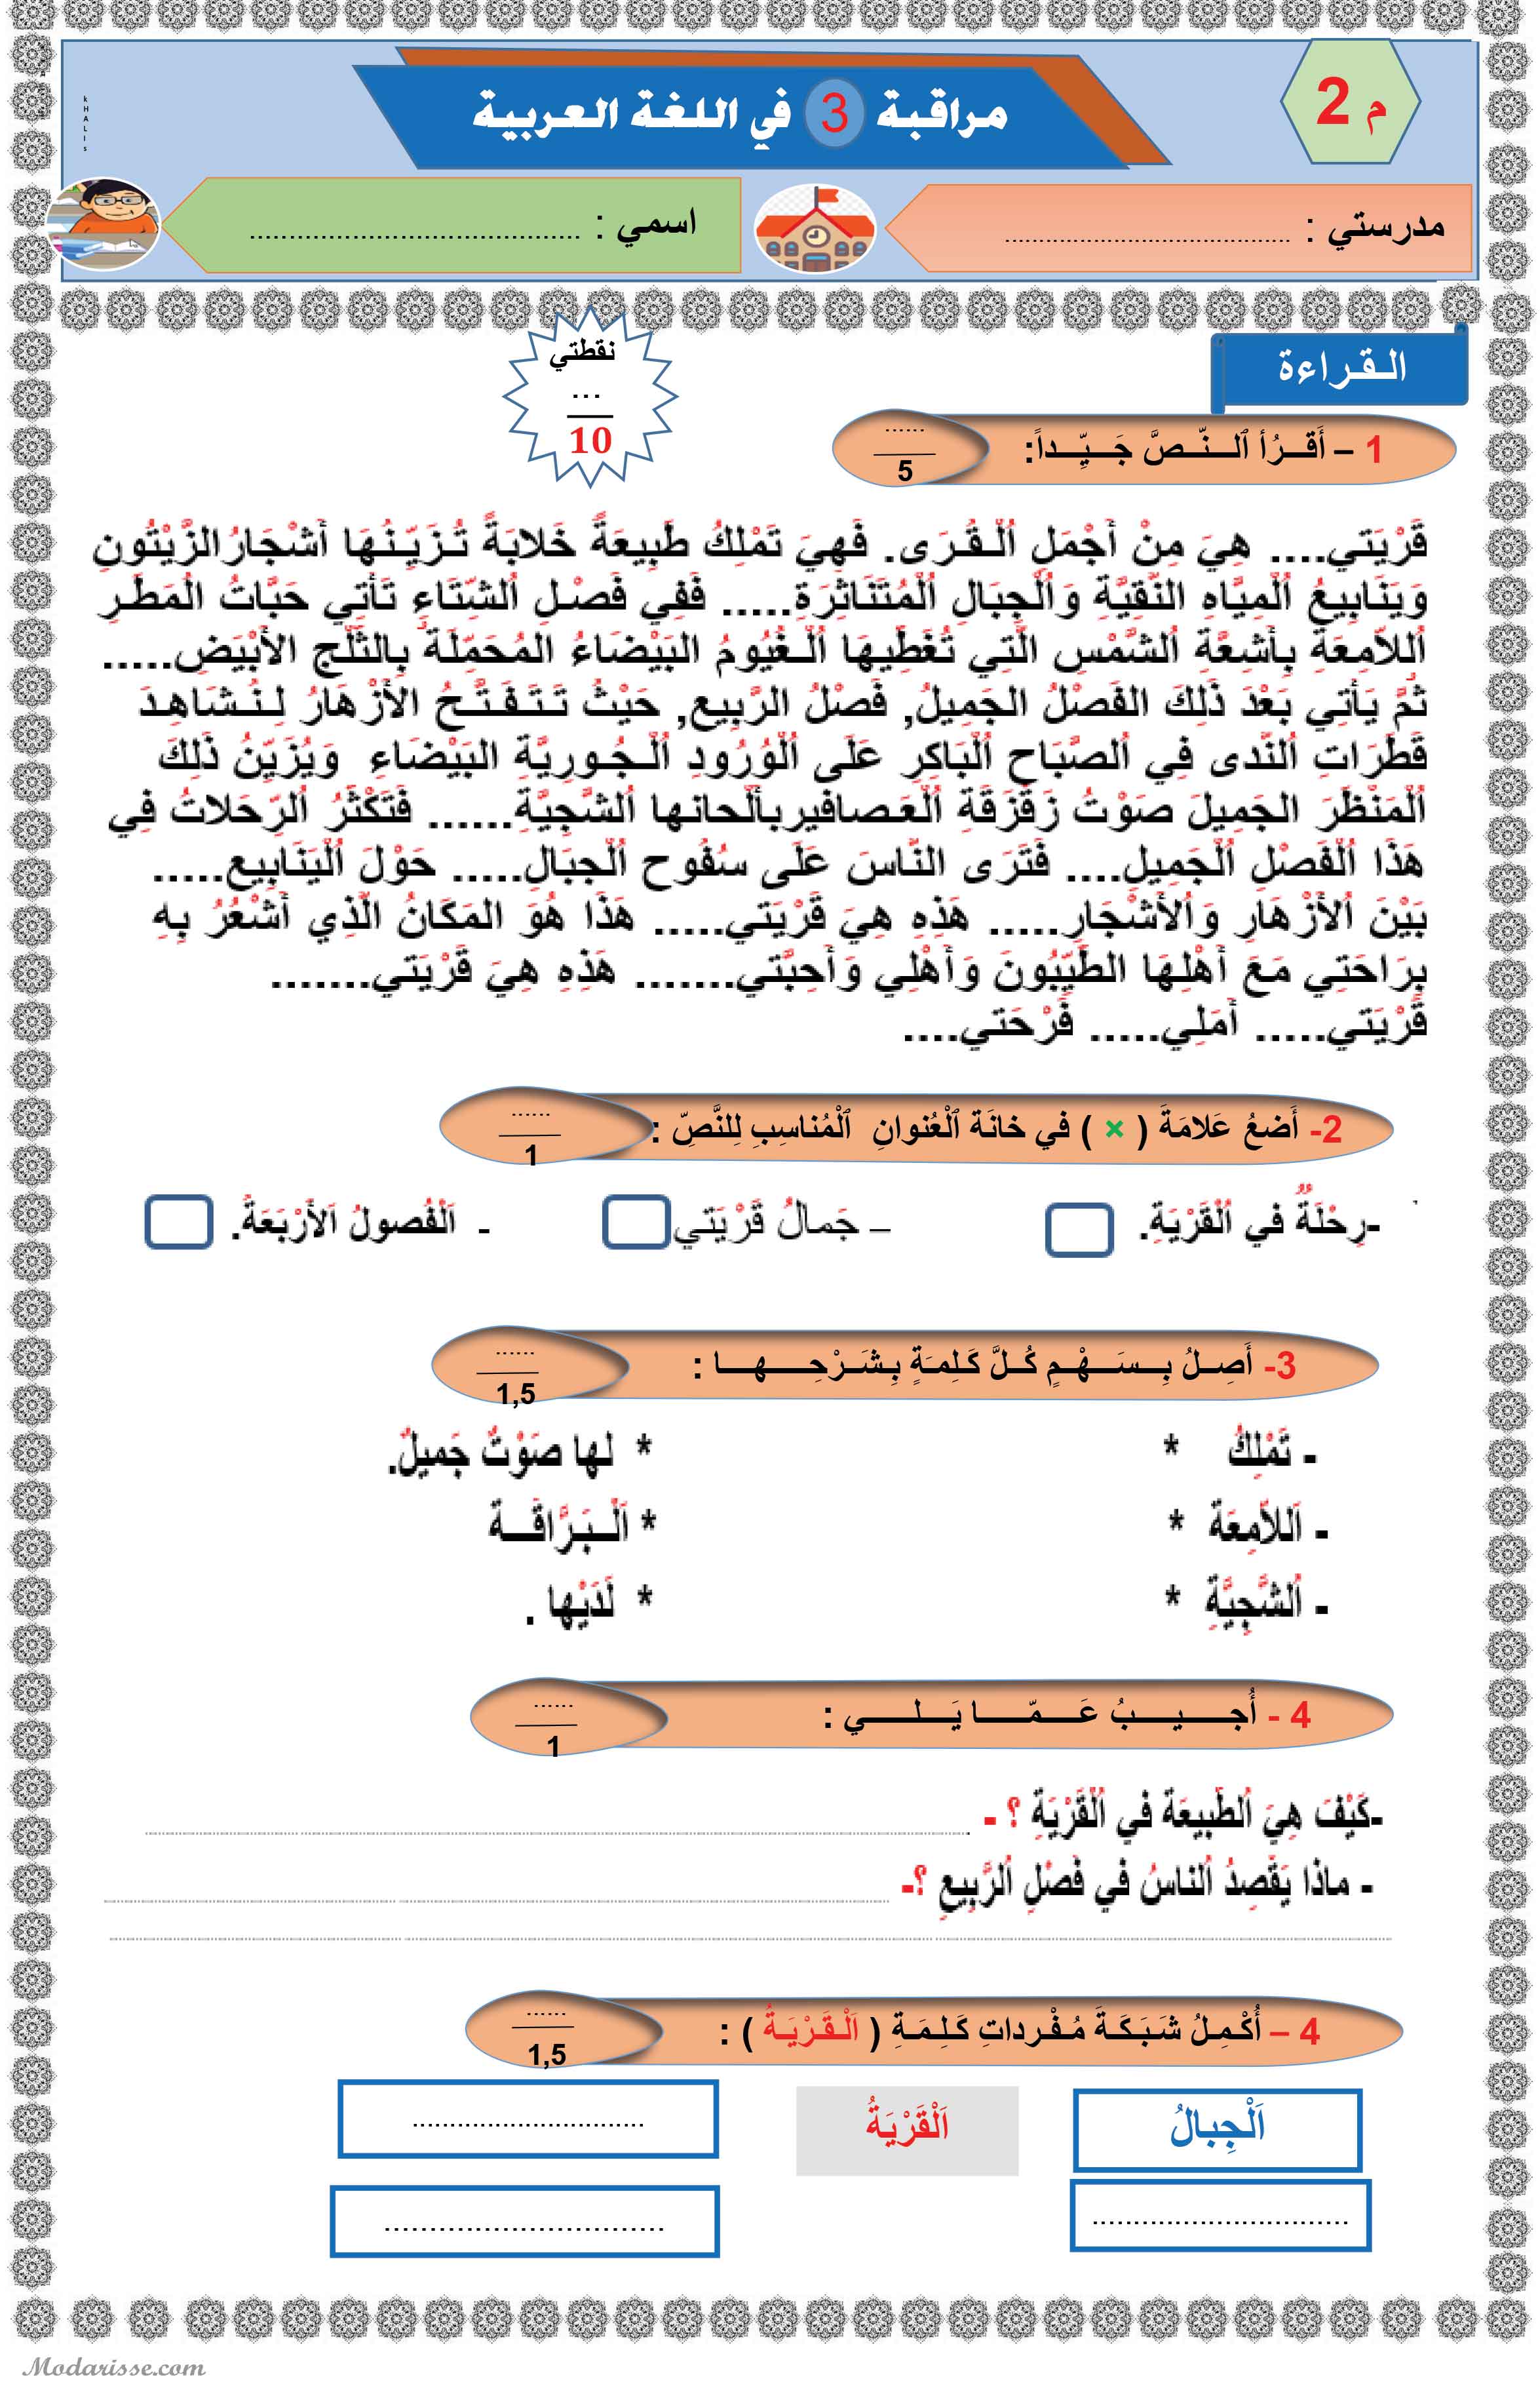 م 2
مراقبة 3 في اللغة العربية
kHALIs
مدرستي : ......................................
اسمي : ..........................................
القراءة
نقطتي
...
10
1 – أَقــرُأ ٱلــنّــصَّ جَــيِّــداً:
......
5
قَرْيَتي.... هِيَ مِنْ أَجْمَلِ اُلْـقُـرَى. فَهِيَ تَمْلِكُ طَبِيعَةً خَلابَةً تُـزَيّـِنُهَا أشْجَارُالزَّيْتُونِ
وَيَنَابِيعُ اُلْمِيَّاهِ النَّقِيَّةِ وَاُلْجِبَالِ اُلْمُتَنَاثِرَةِ..... فَفِي فَصْلِ اُلشِّتَاءِ تَأتِي حَبَّاتُ الْمَطَرِ
اُللاَّمِعَةِ بِأَشِعَّةِ اُلشَّمْسِ الَّتِي تُغَطِّيهَا اُلْـغُيُومُ البَيْضَاءُ المُحَمّلَة بِالثَّلْجِ الأَبْيَضِ.....
ثُمَّ يَأتِي بَعْدَ ذَلِكَ الفَصْلُ الجَمِيلُ, فَصْلُ الرَّبِيع, حَيْثُ تَـتَـفَـتَّـحُ الأَزْهَارُ لِـنُـشَاهِـدَ
قَطَرَاتِ اُلنَّدى فِي اُلصَّبَاحِ اُلْبَاكِرِ عَلَى اُلْوُرُودِ اُلْـجُـورِيَّةِ البَيْضَاءِ وَيُزَيِّنُ ذَلِكَ
اُلْمَنْظَرَ الجَمِيلَ صَوْتُ زَقْزَقَةِ اُلْعَـصافيرِبألْحانها اُلشَّجِيَّةِ...... فَتَكْثَرُ اُلرّحَلاتُ فِي
هَذَا اُلْفَصْلِ اُلْجَمِيلِ.... فَتَرَى النَّاسَ عَلَى سُفُوحِ اُلْجِبَالِ..... حَوْلَ اُلْيَنَابِيعِ.....
بَيْنَ اُلأَزْهَارِ وَاُلأَشْجَارِ..... هَذِهِ هِيَ قَرْيَتي..... هَذَا هُوَ المَكَانُ الّذِي أَشْعُرُ بِهِ
بِرَاحَتِي مَعَ أَهْلِهَا الطَّيِّبُونَ وَأَهْلِي وَأَحِبَّتي....... هَذِهِ هِيَ قَرْيَتي.......
قَرْيَتي..... أمَلِي..... فَرْحَتي....
2- أَضعُ عَلامَةَ ( × ) في خانَة ٱلْعُنوانِ ٱلْمُناسِبِ لِلنَّصِّ :
......
1
-رِحْلَةٌ في اُلْقَرْيَةِ.
– جَمالُ قَرْيَتي
- اَلْفُصولُ اَلأَرْبَعَةُ.
3- أَصِـلُ بِـــسَــهْــمٍ كُــلَّ كَـلِمَـةٍ بِـشَــرْحِـــهــا :
......
1,5
- تَمْلِكُ *
* لها صَوْتٌ جَميلٌ.
- اَللاَّمِعَة *
* اَلْــبَـرَّاقَـــة
- اُلشَّجِيَّةِ *
* لَدَيْها .
4 - أُجـــيـــبُ عَـــمّـــا يَـــلـــي :
......
1
-كَيْفَ هِيَ اُلطَبيعَة في اُلْقَرْيَةِ ؟ -
- ماذا يَقْصِدُ اُلناسُ في فَصْلِ اُلرَّبيعِ ؟-
4 – أُكْـمِـلُ شَـبَـكَـةَ مُـفْـرداتِ كَـلِـمَـةِ ( اَلْـقَـرْيَـةُ ) :
......
1,5
اَلْجِبالُ
اَلْقَرْيَةُ
............................
...............................
..................................
Modarisse.com